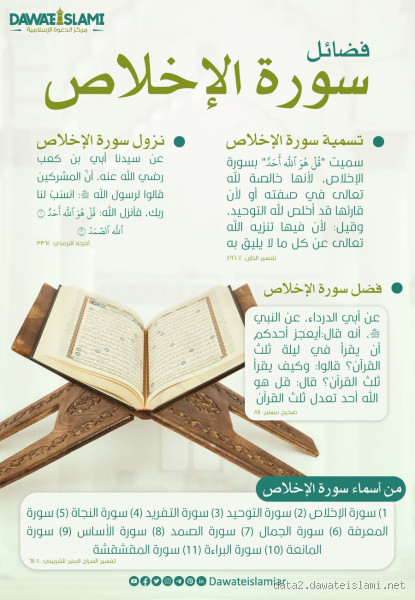 DAWATEISLAMI
مركز الدعوة الإسلامية
فضائل
سورة الإخلاص
تسمية سورة الإخلاص
سميت "قُلْ هُوَ اللّٰهُ أَحَدٌ" بسورة
الإخلاص لأنها خالصة لله
تعالى في صفته أو لأن
قارئها قد أخلص لله التوحيد،
وقيل: لأن فيها تنزيه الله
تعالى عن كل ما لا يليق به
نزول سورة الإخلاص
عن سيدنا أبي بن كعب
رضي الله عنه، أنَّ المشركين
قالوا لرسول الله ﷺ: انسَب لنا
ربك، فأنزل الله: قُلْ هُوَ اللّٰهُ أَحَدٌ ①
اللّٰهُ الصَّمَدُ ②
أخرجه الترمذي: ٣٣٦٤
فضل سورة الإخلاص
عن أبي الدرداء، عن النبي
ﷺ، أنه قال:أيعجز أحدكم
أن يقرأ في ليلة ثلث
القرآن؟ قالوا: وكيف يقرأ
ثلث القرآن؟ قال: قل هو
الله أحد تعدل ثلث القرآن
من أسماء سورة الإخلاص
1) سورة الإخلاص (2) سورة التوحيد (3) سورة التفريد (4) سورة النجاة (5) سورة
المعرفة (6) سورة الجمال (7) سورة الصمد (8) سورة الأساس (9) سورة
المانعة (10) سورة البراءة (11) سورة المقشقشة
Dawateislamiar
data2.dawateislami.net